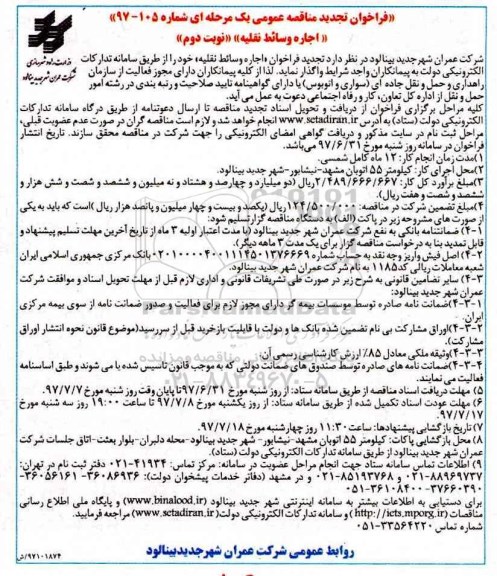 «فراخوان تجدید مناقصه عمومی یک مرحله ای شماره ۱۰۵-۹۷»
« اجاره وسائط نقلیه» «نوبت دوم»
شرکت عمران شهر جدید بینالود در نظر دارد تجدید فراخوان «اجاره وسائط نقلیه» خود را از طریق سامانه تدارکات
الکترونیکی دولت به پیمانکاران واجد شرایط واگذار نماید. لذا از کلیه پیمانکاران دارای مجوز فعالیت از سازمان
راهداری و حمل و نقل جاده ای (سواری و اتوبوس) یا دارای گواهینامه تایید صلاحیت و رتبه بندی در رشته امور
حمل و نقل از اداره کل تعاون، کار و رفاه اجتماعی دعوت به عمل می آید.
کلیه مراحل برگزاری فراخوان از دریافت و تحویل اسناد تجدید مناقصه تا ارسال دعوتنامه از طریق درگاه سامانه تدارکات
الکترونیکی دولت (ستاد) به آدرس www.sctadiran.ir انجام خواهد شد و لازم است مناقصه گران در صورت عدم عضویت قبلی،
مراحل ثبت نام در سایت مذکور و دریافت گواهی امضای الکترونیکی را جهت شرکت در مناقصه محقق سازند. تاریخ انتشار
فراخوان در سامانه روز شنبه مورخ ۹۷/۶/۳۱ می‌باشد.
۱)مدت زمان انجام کار: ۱۲ ماه کامل شمسی.
۲)محل اجرای کار: کیلومتر ۵۵ اتوبان مشهد-نیشابور-شهر جدید بینالود.
۳)مبلغ برآورد کل کار: ۲/۴۸۹/۶۶۶/۶۶۷ ریال (دو میلیارد و چهارصد و هشتاد و نه میلیون و ششصد و شصت و شش هزار و
ششصد و شصت و هفت ریال).
۴)مبلغ تضمین شرکت در مناقصه: ۱۲۴/۵۰۰/۰۰۰ ریال (یکصد و بیست و چهار میلیون و پانصد هزار ریال )است که باید به یکی
از صورت های مشروحه زیر در پاکت (الف) به دستگاه مناقصه گزار تسلیم شود:
۴-۱) ضمانتنامه بانکی به نفع شرکت عمران شهر جدید بینالود (با مدت اعتبار اولیه ۳ ماه از تاریخ آخرین مهلت تسلیم پیشنهاد و
قابل تمدید بنا به درخواست مناقصه گزار برای یک مدت ۳ ماهه دیگر).
۴-۲) اصل فیش واریز وجه نقد به حساب شماره بانک مرکزی جمهوری اسلامی ایران
شعبه معاملات ریالی کد ۱۱۸۵ به نام شرکت عمران شهر جدید بینالود.
۴-۳) سایر تضامین قانونی به شرح زیر در صورت طی تشریفات قانونی و اداری لازم قبل از مهلت تحویل اسناد و موافقت شرکت
عمران شهر جدید بینالود:
۴-۳-۱)ضمانت نامه صادره توسط موسسات بیمه گر دارای مجوز لازم برای فعالیت و صدور ضمانت نامه از سوی بیمه مرکزی
ایران.
۴-۳-۲)اوراق مشارکت بی نام تضمین شده بانک ها و دولت با قابلیت بازخرید قبل از سررسید(موضوع قانون نحوه انتشار اوراق
مشارکت).
۴-۳-۳)وثیقه ملکی معادل ۸۵٪ ارزش کارشناسی رسمی آن.
۴-۳-۴)ضمانت نامه های صادره توسط صندوق های ضمانت دولتی که به موجب قانون تاسیس شده یا می شوند و طبق اساسنامه
فعالیت می نمایند.
۵) مهلت دریافت اسناد مناقصه از طریق سامانه ستاد: از روز شنبه مورخ ۹۷/۶/۳۱ تا پایان وقت روز شنبه مورخ ۹۷/۷/۷.
۶) مهلت عودت اسناد تکمیل شده از طریق سامانه ستاد: از روز یکشنبه مورخ ۹۷/۷/۸ تا ساعت ۱۹:۰۰ روز سه شنبه مورخ
۹۷/۷/۱۷
۷) تاریخ بازگشایی پیشنهادها: ساعت ۱۱:۳۰ روز چهارشنبه مورخ ۹۷/۷/۱۸
۸) محل بازگشایی پاکات: کیلومتر ۵۵ اتوبان مشهد-نیشابور- شهر جدید بینالود-محله دلبران-بلوار بعثت-اتاق جلسات شرکت
عمران شهر جدید بینالود از طریق سامانه تدارکات الکترونیکی دولت (ستاد).
۹) اطلاعات تماس سامانه ستاد جهت انجام مراحل عضویت در سامانه: مرکز تماس: ۴۱۹۳۴-۰۲۱ دفتر ثبت نام در تهران:
۸۸۹۶۹۷۳۷-۰۲۱ و ۸۵۱۹۳۷۶۸-۰۲۱ و در مشهد (دفاتر خدمات پیشخوان دولت): ۳۶۰۸۶۹۳۶- ۳۶۰۵۶۱۶۱-
۳۷۶۶۰۳۹۰- ۳۶۱۰۸۴۰۰-۰۵۱
برای دستیابی به اطلاعات بیشتر به سامانه اینترنتی شهر جدید بینالود (www.binalood.ir) و پایگاه ملی اطلاع رسانی
مناقصات (http://icts.mporg.ir) و سامانه تدارکات الکترونیکی دولت (www.sctadiran.ir) مراجعه فرمایید.
شماره تماس ۳۳۵۶۴۲۲۰-۰۵۱
روابط عمومی شرکت عمران شهر جدید بینالود
۹۷۱۰۱۸۷۴/ش